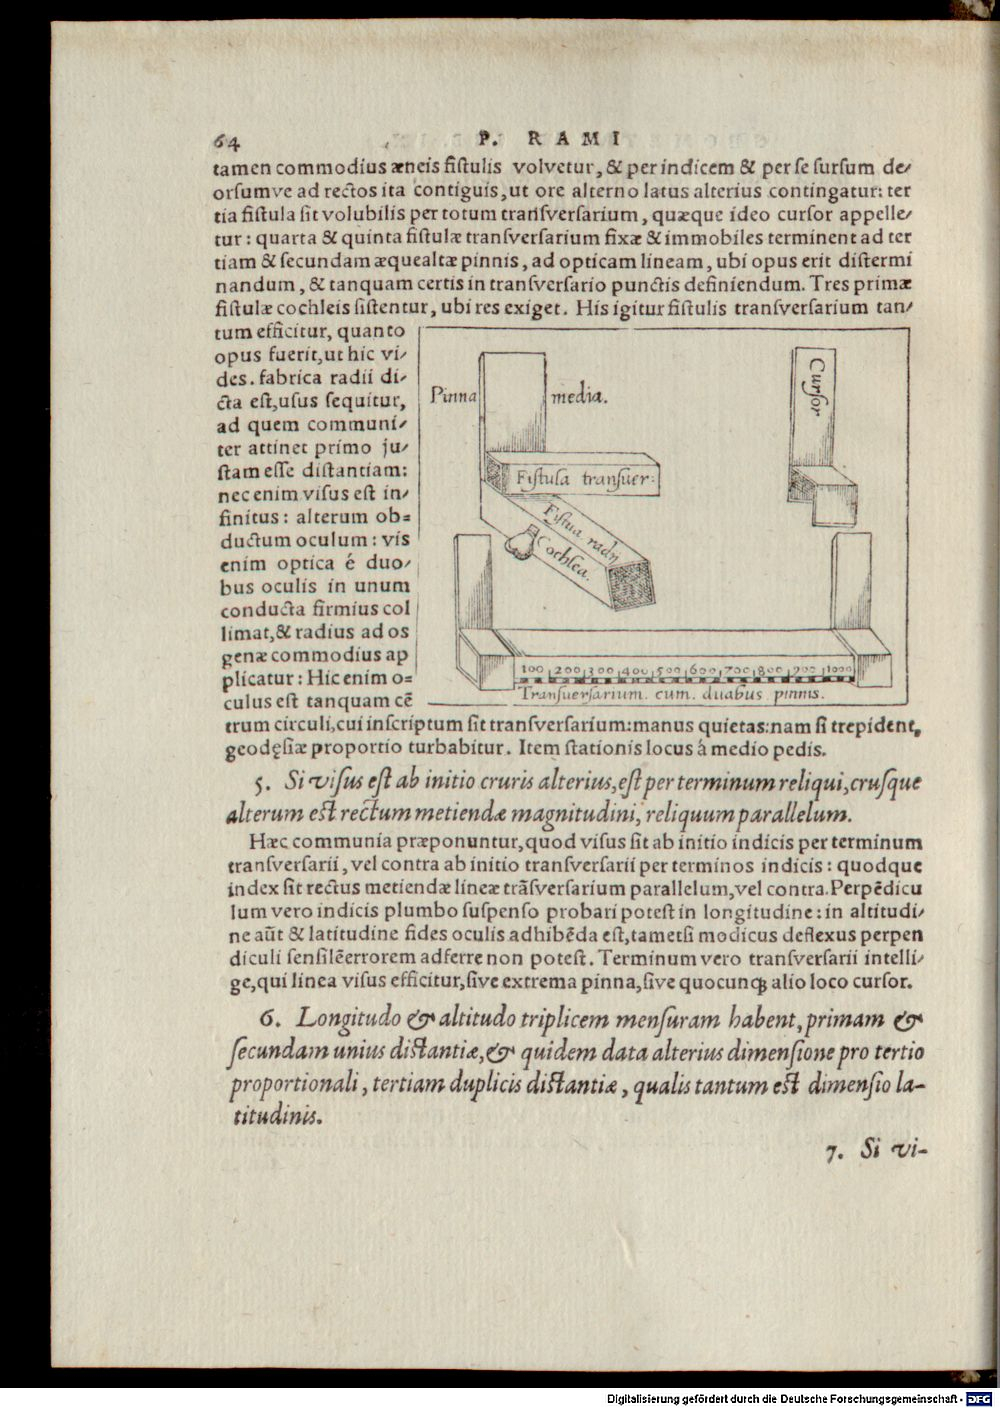 64
P. RAMI
tamen commodius æneis fistulis volvetur, & per indicem & per se sursum de/
orsumve ad rectos ita contiguis, ut ore alterno latus alterius contingatur: ter
tia fistula sit volubilis per totum transversarium, quæque ideo cursor appelle/
tur: quarta & quinta fistulæ transversarium fixæ & immobiles terminent ad ter
tiam & secundam æquealtæ pinnis, ad opticam lineam, ubi opus erit distermi
nandum, & tanquam certis in transversario punctis definiendum. Tres primæ
fistulæ cochleis sistentur, ubi res exiget. His igitur fistulis transversarium tan/
tum efficitur, quanto
opus fuerit, ut hic vi/
des. fabrica radii di/
cta est, usus sequitur,
ad quem communi/
ter attinet primo ju/
stam esse distantiam:
nec enim visus est in/
finitus: alterum ob=
ductum oculum: vis
enim optica é duo/
bus oculis in unum
conducta firmius col
limat, & radius ad os
genæ commodius ap
plicatur: Hic enim o=
culus est tanquam cē
trum circuli, cui inscriptum sit transversarium: manus quietas: nam si trepident,
geodęsiæ proportio turbabitur. Item stationis locus á medio pedis.
Pinna media.
Cursor
Fistula transuer:
Fistua radii
Cochlea.
100 200 300 400 500 600 700 800 900 1000
Transuersarium. cum. duabus pinnis.
5. Si visus est ab initio cruris alterius, est per terminum reliqui, crusque
alterum est rectum metiendæ magnitudini, reliquum parallelum.
Hæc communia præponuntur, quod visus sit ab initio indicis per terminum
transversarii, vel contra ab initio transversarii per terminos indicis: quodque
index sit rectus metiendæ lineæ trāsversarium parallelum, vel contra. Perpēdicu
lum vero indicis plumbo suspenso probari potest in longitudine: in altitudi/
ne aūt & latitudine fides oculis adhibēda est, tametsi modicus deflexus perpen
diculi sensilē errorem adferre non potest. Terminum vero transversarii intelli/
ge, qui linea visus efficitur, sive extrema pinna, sive quocunqꝫ alio loco cursor.
6. Longitudo & altitudo triplicem mensuram habent, primam &
secundam unius distantiæ, & quidem data alterius dimensione pro tertio
proportionali, tertiam duplicis distantiæ, qualis tantum est dimensio la-
titudinis.
7. Si vi-
Digitalisierung gefördert durch die Deutsche Forschungsgemeinschaft - DFG